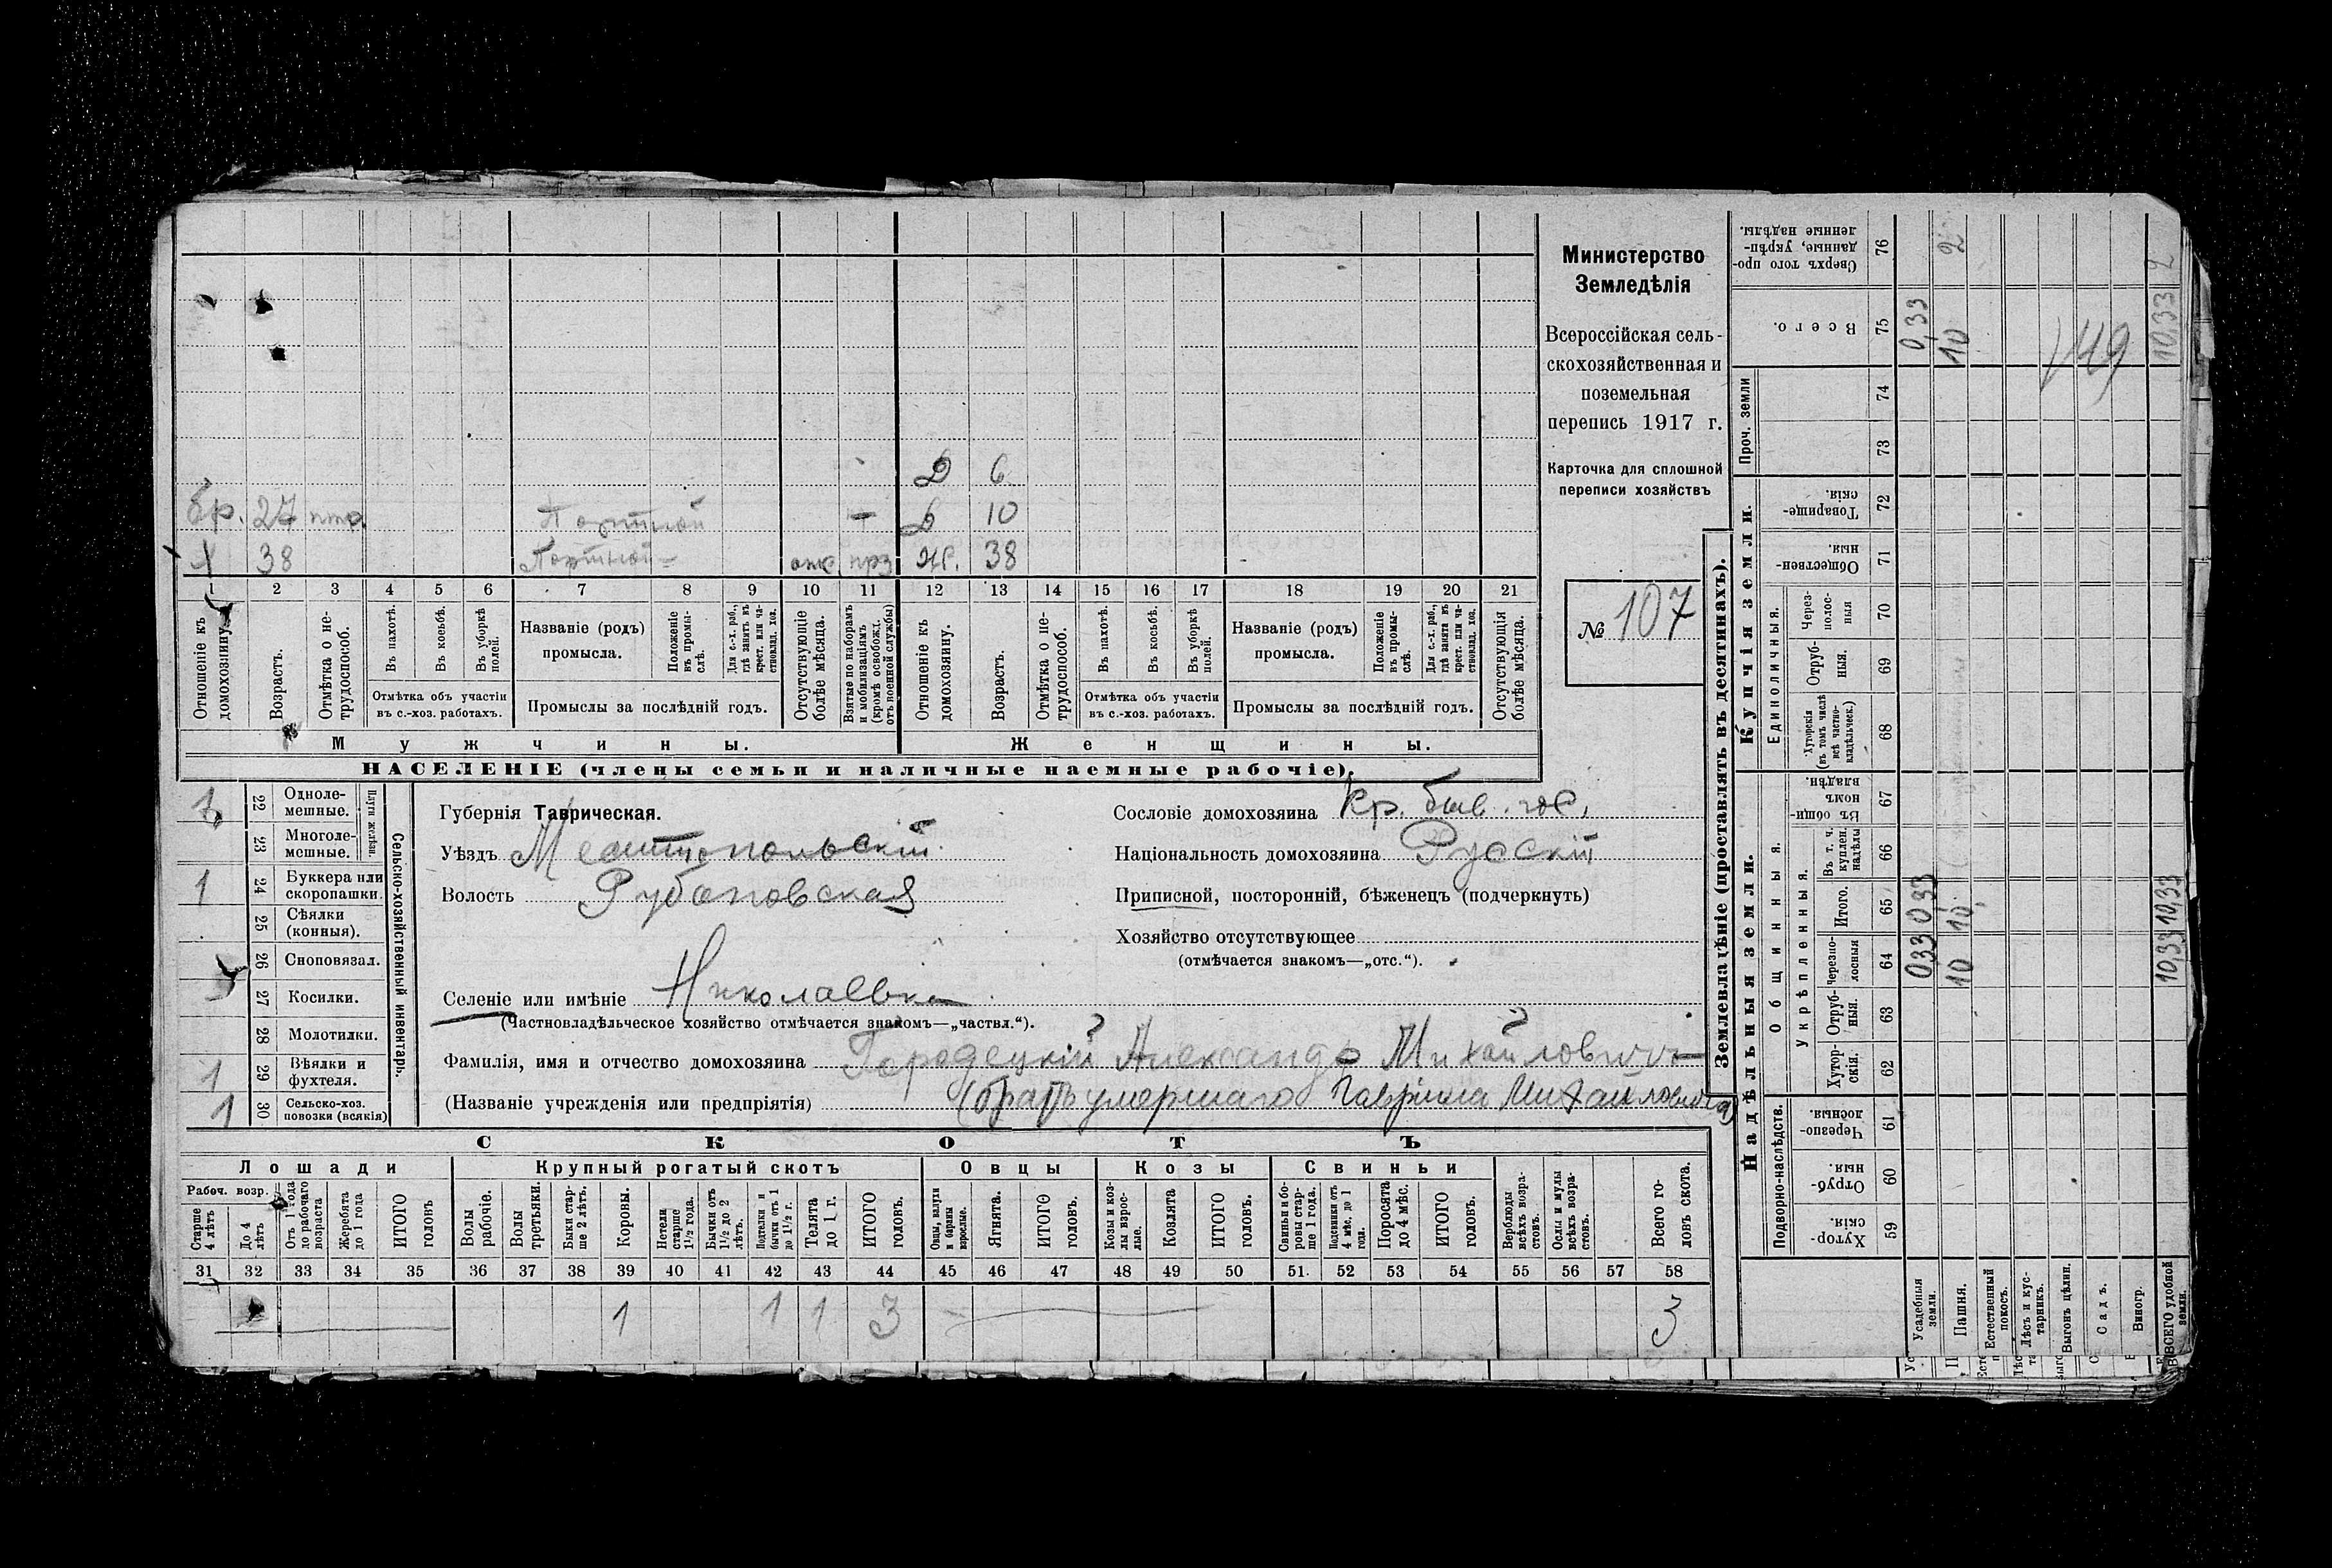 Д 6
бр. 27 Портной Д 10
Х 38 Портной ж. 38
1 2 3 4 5 6 7 8 9 10 11 12 13 14 15 16 17 18 19 20 21
Отношеніе къ домохозяину.
Возрастъ.
Отмѣтка о не-трудоспособ.
Въ пахотѣ.
Въ косьбѣ.
Въ уборкѣ полей.
Отмѣтка объ участіи
въ с.-хоз. работахъ.
Названіе (родъ)
промысла.
Положеніе въ промы-слѣ.
Для с.-х. раб., гдѣ занятъ въ крест. или ча-ствовлад. хоз.
Промыслы за послѣдній годъ.
Отсутствующіе болѣе мѣсяца.
Взятые по наборамъ и мобилизаціямъ (кромѣ освобожд. отъ военной службы)
Отношеніе къ домохозяину.
Возрастъ.
Отмѣтка о не-трудоспособ.
Въ пахотѣ.
Въ косьбѣ.
Въ уборкѣ полей.
Отмѣтка объ участіи
въ с.-хоз. работахъ.
Названіе (родъ)
промысла.
Положеніе въ промы-слѣ.
Для с.-х. раб., гдѣ занята въ крест. или ча-ствовлад. хоз.
Промыслы за послѣдній годъ.
Отсутствующія болѣе мѣсяца.
Мужчины.
Женщины.
НАСЕЛЕНІЕ (члены семьи и наличные наемные рабочіе).
Министерство
Земледѣлія
Всероссійская сель-
скохозяйственная и
поземельная
перепись 1917 г.
Карточка для сплошной
переписи хозяйствъ
№ 107
22 Однолемешные.
23 Многолемешные.
Плуги желѣзн.
1 24 Буккера или скоропашки.
25 Сѣялки (конныя).
26 Сноповязал.
27 Косилки.
28 Молотилки.
1 29 Вѣялки и фухтеля.
1 30 Сельско-хоз. повозки (всякія)
Сельско-хозяйственный инвентарь.
Губернія Таврическая.
Уѣздъ Мелитопольскій
Волость Рубановская
Селеніе или имѣніе Николаевка
(Частновладѣльческое хозяйство отмѣчается знакомъ—„частвл.“).
Фамилія, имя и отчество домохозяина Городецкій Александр Михайловичъ
(Названіе учрежденія или предпріятія) (братъ умершаго Гавріила Михайловича)
Сословіе домохозяина Кр. быв. гос.
Національность домохозяина Русскій
Приписной, посторонній, бѣженецъ (подчеркнуть)
Хозяйство отсутствующее
(отмѣчается знакомъ—„отс.“).
СКОТЪ
Лошади
Крупный рогатый скотъ
Овцы
Козы
Свиньи
Рабоч. возр.
Старше 4 лѣтъ
До 4 лѣтъ
Отъ 1 года до рабочаго возраста
Жеребята до 1 года
ИТОГО головъ
Волы рабочіе.
Волы третьяки.
Быки стар-ше 2 лѣтъ.
Коровы.
Нетели старше 1½ года.
Бычки отъ 1½ до 2 лѣтъ.
Подтелки и бычки отъ 1 до 1½ г.
Телята до 1 г.
ИТОГО головъ.
Овцы, валухи и бараны взрослые.
Ягнята.
ИТОГО головъ.
Козы и коз-лы взрос-лые.
Козлята
ИТОГО головъ.
Свиньи и бо-ровы стар-ше 1 года.
Подсвинки отъ 4 мѣс. до 1 года.
Поросята до 4 мѣс.
ИТОГО головъ.
Верблюды всѣхъ возра-стовъ.
Ослы и мулы всѣхъ возра-стовъ.
Всего го-ловъ скота.
31 32 33 34 35 36 37 38 39 40 41 42 43 44 45 46 47 48 49 50 51. 52 53 54 55 56 57 58
1 1 1 3 3
Землевладѣніе (проставлять въ десятинахъ).
Надѣльныя земли.
Купчія земли.
Проч. земли
Подворно-наслѣдств.
Общинныя.
Укрѣпленныя.
Единоличныя.
Хутор-скія. 59
Отруб-ныя. 60
Черезпо-лосныя. 61
Хутор-скія. 62
Отруб-ныя. 63
Черезпо-лосныя 64
Итого. 65
Въ т. ч. куплен. надѣлы 66
Въ общин-номъ владѣн. 67
Хуторскія (въ томъ числѣ всѣ частно-владѣльческ.) 68
Отруб-ныя. 69
Через-полос-ныя 70
Обществен-ныя. 71
Товарище-скія. 72
73
74
Всего. 75
Сверхъ того про-данные, укрѣп-ленные надѣлы. 76
Усадебныя земли. 0,33 0,33 0,33
Пашня. 10 10 10 2
Естественный покосъ.
Лѣсъ и кус-тарникъ.
Выгонъ цѣлин.
Садъ.
Виногр.
ВСЕГО удобной земли. 10,33 10,33 10,33 2
149